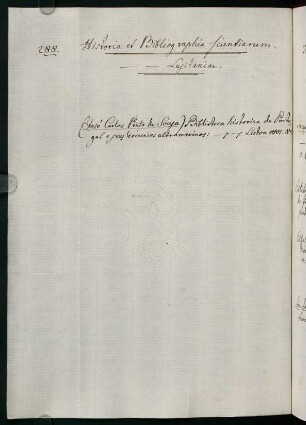 288. Historia et Bibliographia scientiarum.
Lusitaniae.
(José Carlos Pinto de Sousa) Bibliotheca historica de Portu-
gal e seus dominios ultramarinos: Lisboa 1801.